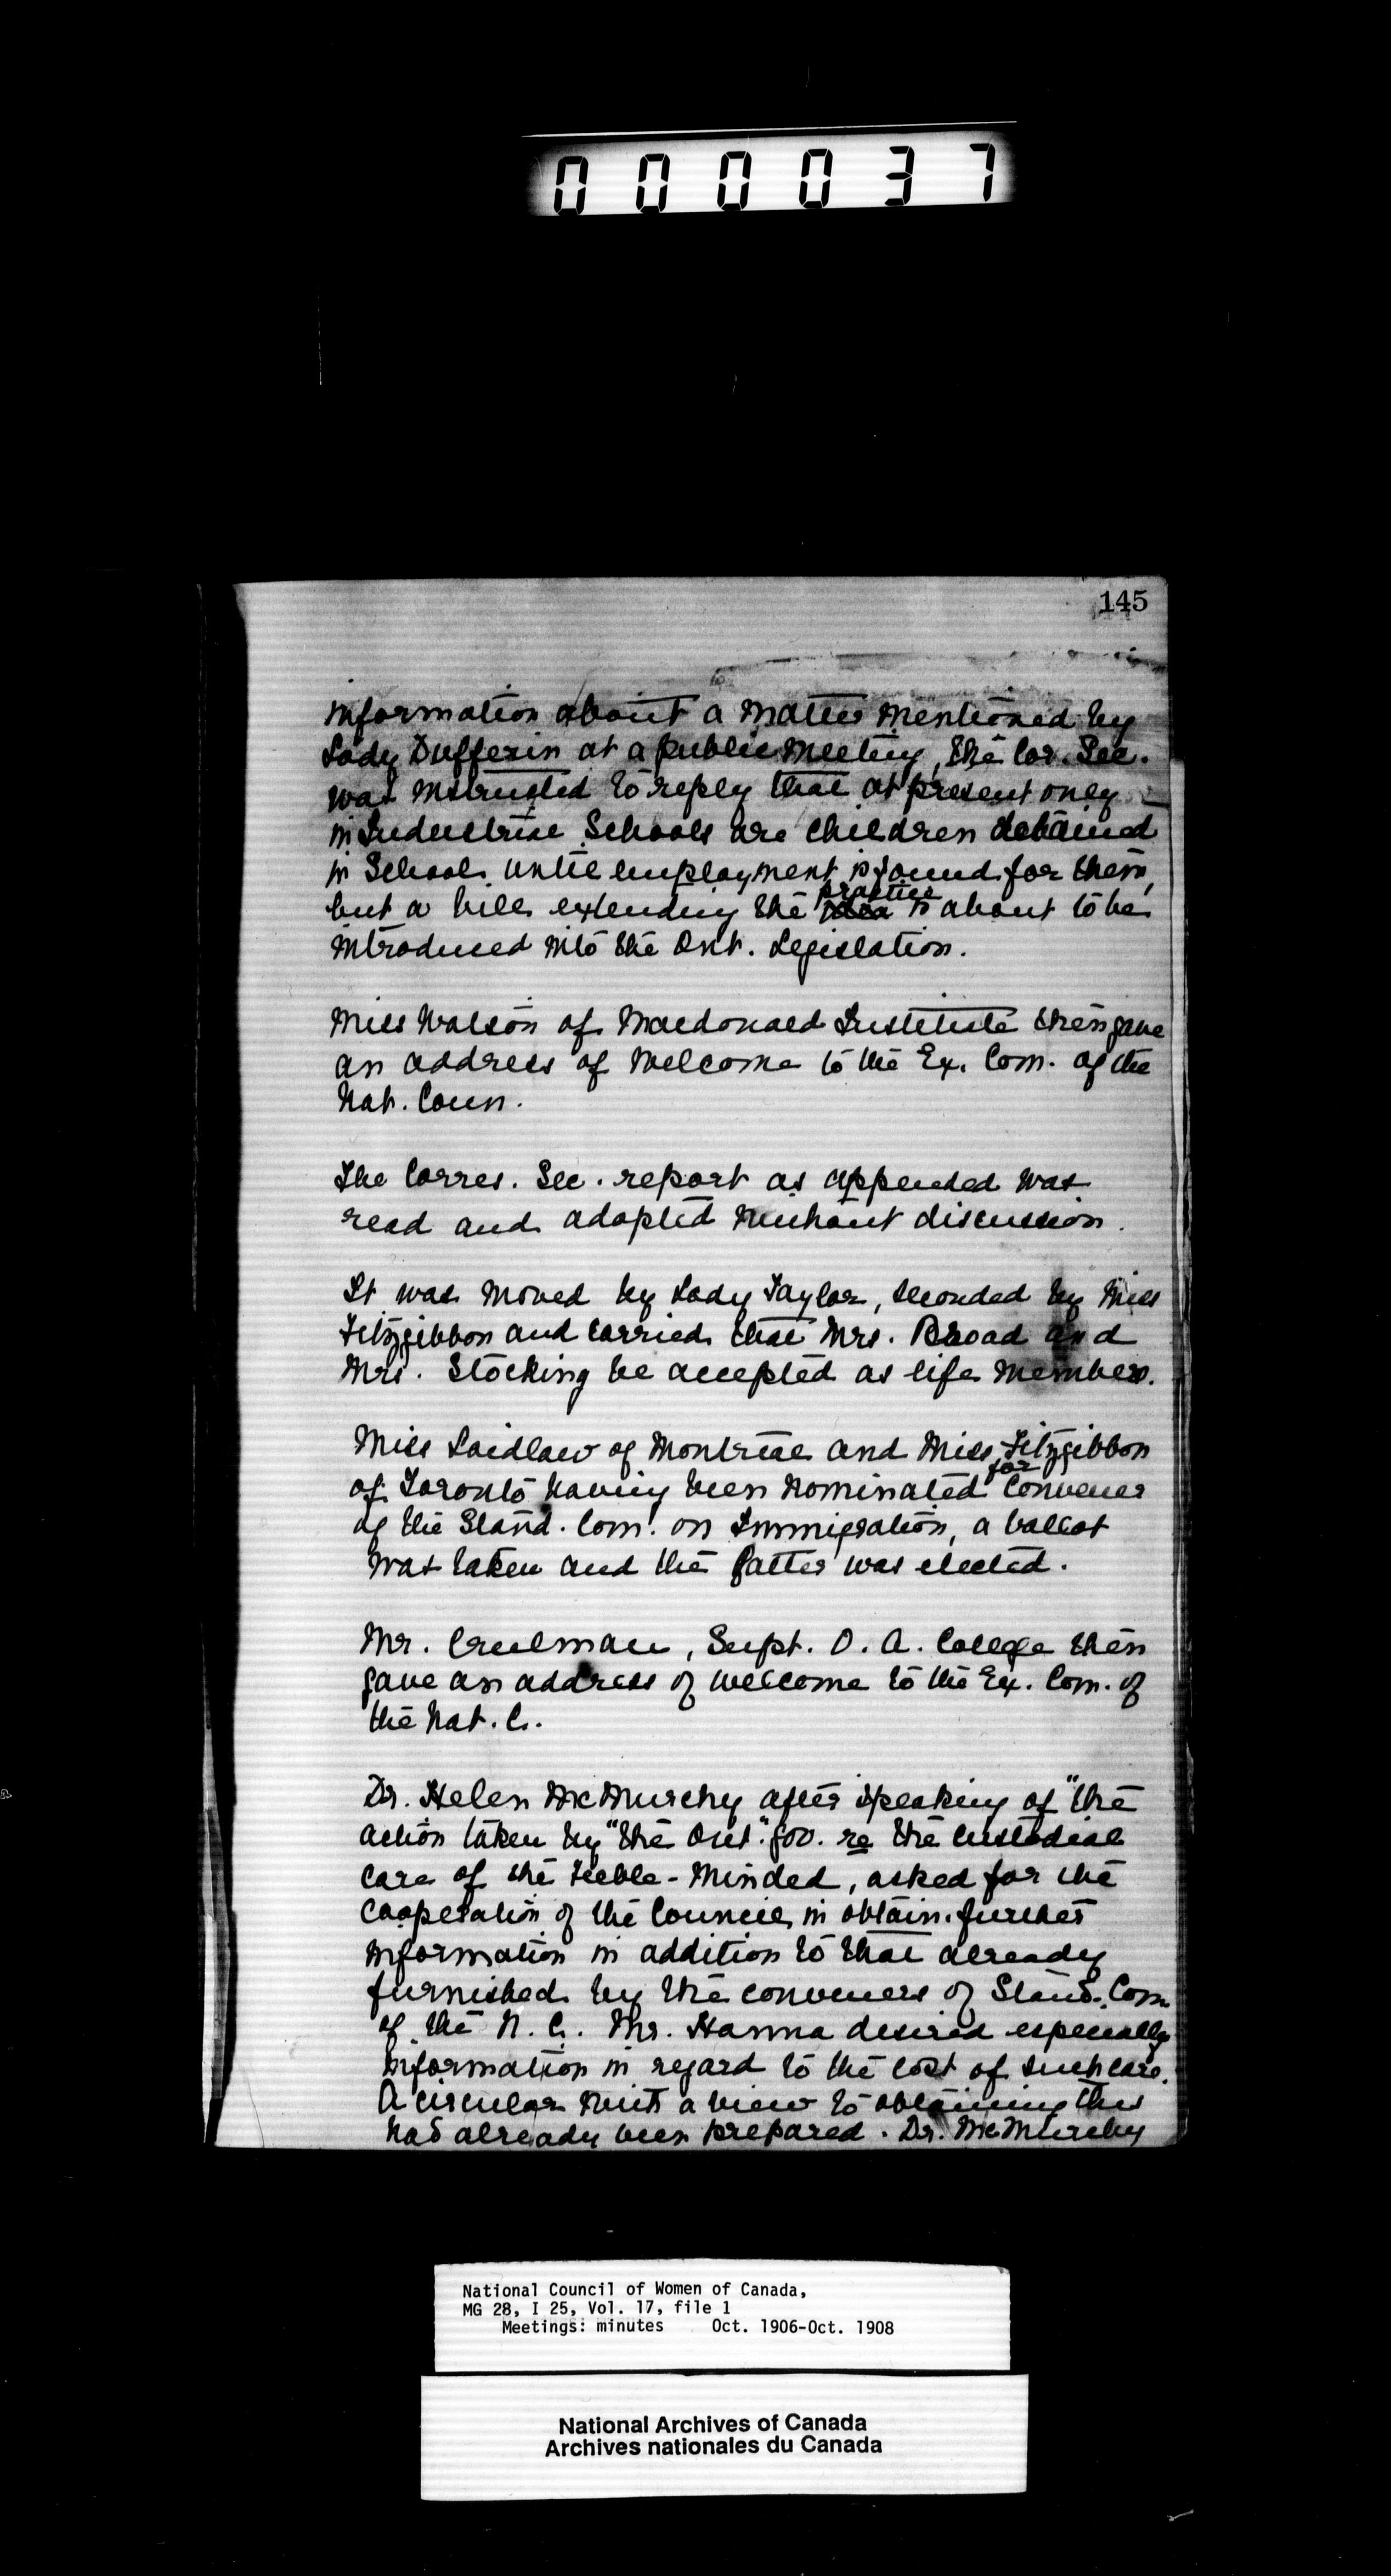 000037
145
information about a matter mentioned by
Lady Dufferin at a public meeting, the Cor. Sec.
was instructed to reply that at present only
in Industrial Schools are children detained
in School until employment is found for them,
but a bill extending the practice is about to be
introduced into the Ont. Legislation.
Miss Watson of Macdonald Institute then gave
an address of welcome to the Ex. Com. of the
Nat. Coun.
The Corres. Sec. report as appended was
read and adopted without discussion.
It was moved by Lady Taylor, seconded by Miss
Fitzgibbon and carried that Mrs. Broad and
Mrs. Stocking be accepted as life members.
Miss Laidlaw of Montreal and Miss Fitzgibbon
of Toronto having been nominated for Convener
of the Stand. Com. on Immigration, a ballot
was taken and the latter was elected.
Mr. Creelman, Supt. O. A. College then
gave an address of welcome to the Ex. Com. of
the Nat. C.
Dr. Helen McMurchy after speaking of "the
action taken by "the Ont." Gov. re the custodial
care of the Feeble-Minded, asked for the
cooperation of the Council in obtain. further
information in addition to that already
furnished by the conveners of Stand. Com.
of the N. C. Mr. Hanna desired especially
information in regard to the cost of such care.
A circular with a view to obtaining this
had already been prepared. Dr. McMurchy
National Council of Women of Canada,
MG 28, I 25, Vol. 17, file 1
Meetings: minutes Oct. 1906-Oct. 1908
National Archives of Canada
Archives nationales du Canada